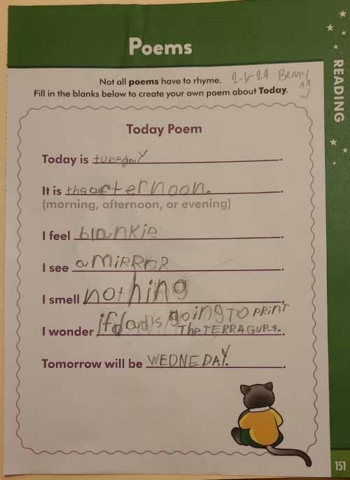 Poems
Not all poems have to rhyme.
Fill in the blanks below to create your own poem about Today.
READING
Today Poem
Today is tuesdaY.
It is the afternoon.
(morning, afternoon, or evening)
I feel blankie.
I see a MIRROR.
I smell nothing.
I wonder if dad's going TO PRINT
The TERRAGURA.
Tomorrow will be WEDNEDAY.
151